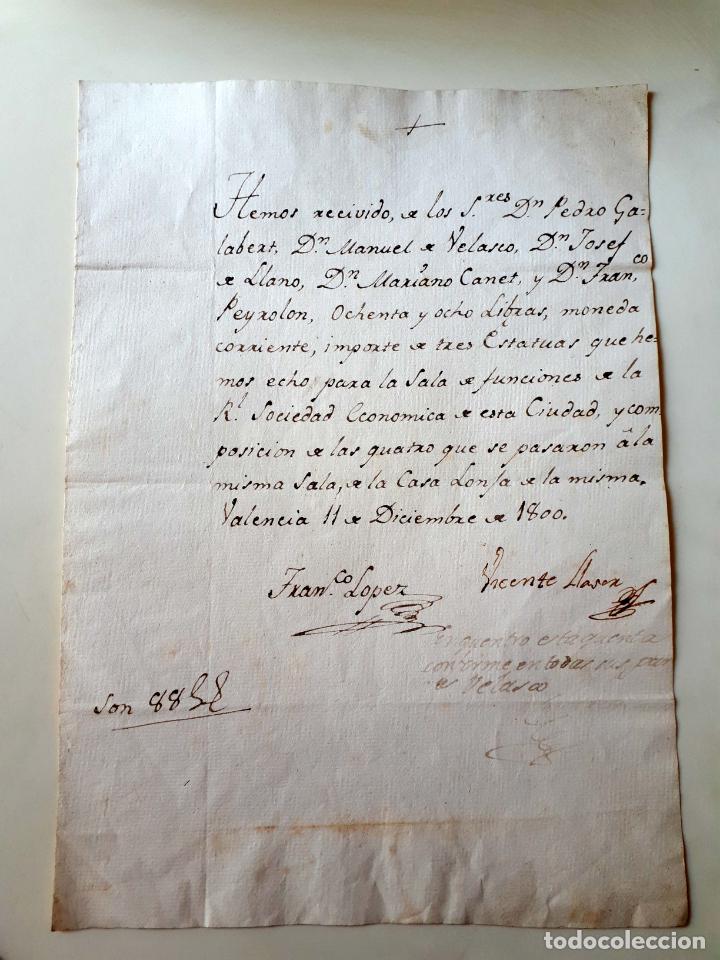 +
Hemos recivido, de los S.res Dn Pedro Ga-
labert, Dn Manuel de Velasco, Dn Josef
de Llano, Dn Mariano Canet, y Dn Fran.co
Peyrolon, Ochenta y ocho Libras, moneda
corriente, importe de tres Estatuas que he-
mos echo para la Sala de funciones de la
Rl. Sociedad Economica de esta Ciudad, y com-
posicion de las quatro que se pasaron â la
misma Sala, de la Casa Lonja de la misma.
Valencia 11 de Diciembre de 1800.
Fran.co Lopez
Vicente Llaser
Enquentro esta quenta
conforme en todas sus par
es Velasco
Son 88 L
todocoleccion
todocoleccion.net